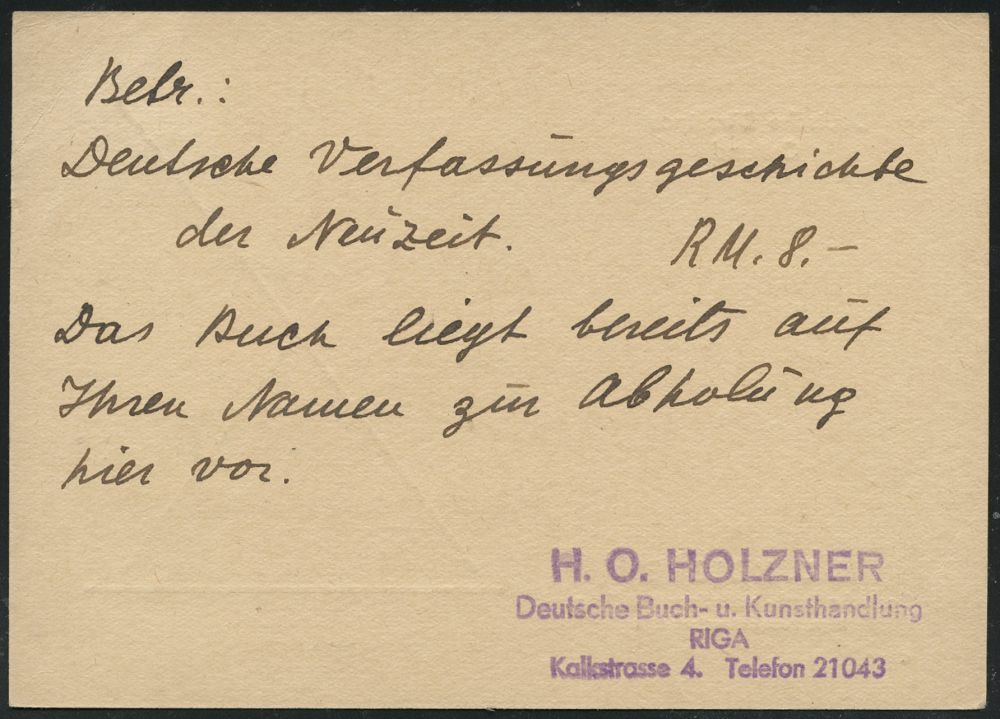 Betr.:
Deutsche Verfassungsgeschichte
der Neuzeit. RM. 8.–
Das Buch liegt bereits auf
Ihren Namen zur Abholung
hier vor.
H. O. HOLZNER
Deutsche Buch- u. Kunsthandlung
RIGA
Kalkstrasse 4. Telefon 21043